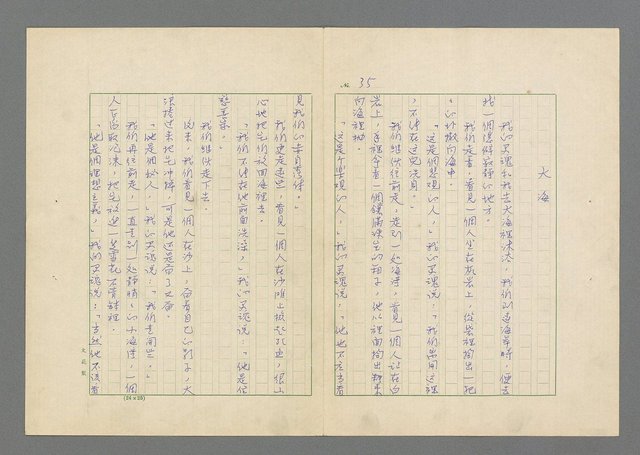 35
大海
我的靈魂和我去大海裡沐浴,我們到達海岸時,便去
找一個隱僻寂靜的地方。
我們走著,看見一個人坐在灰岩上,從袋裡掏出一把
的鹽撒向海中。
「這是個悲觀的人,」我的靈魂說:「我們離開這裡
,不可在這兒洗身。」
我們繼續往前走,走到一處海灣,看見一個人站在白
岩上,手裡拿著一個鑲滿珠玉的箱子,他從裡面掏出糖來
向海裡拋。
「這是個樂觀的人,」我的靈魂說:「他也不应当看
見我們的赤身露體。」
我們更走遠些,看見一個人在沙灘上撿起死魚,很小
心地把它們放回海裡去。
「我們不可在他前面洗澡,」我的靈魂說:「他是位
慈善家。」
我們繼續走下去。
後來,我們看見一個人在沙上,畫着自己的影子,大
浪捲过来把它冲掉,可是他还是畫了又畫。
「他是個人,」我的靈魂說:「我們走開些。」
我們再往前走,一直走到一處靜的小海灣,一個
人正舀取泡沫,把它放進一隻雪花石膏鉢裡。
「他是個理想主義,」我的靈魂說:「当然他不該看
(24×25)